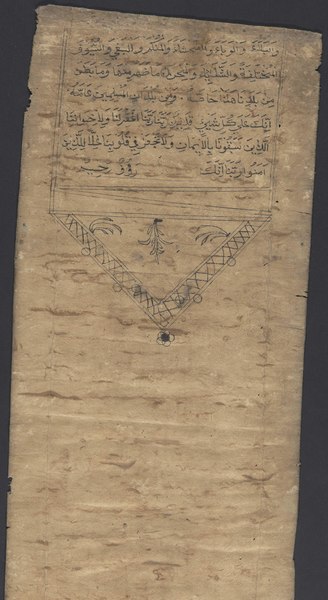 والبلاء والوباء والفحشاء والمنكر والبغي والسيوف
المختلفة والشدائد والمحن ما ظهر منها وما بطن
من بلدنا هذا خاصة ومن بلدان المسلمين عامة
انك على كل شيء قدير ربنا اغفر لنا ولاخواننا
الذين سبقونا بالايمان ولا تجعل في قلوبنا غلا للذين
امنوا ربنا انك رؤف رحيم